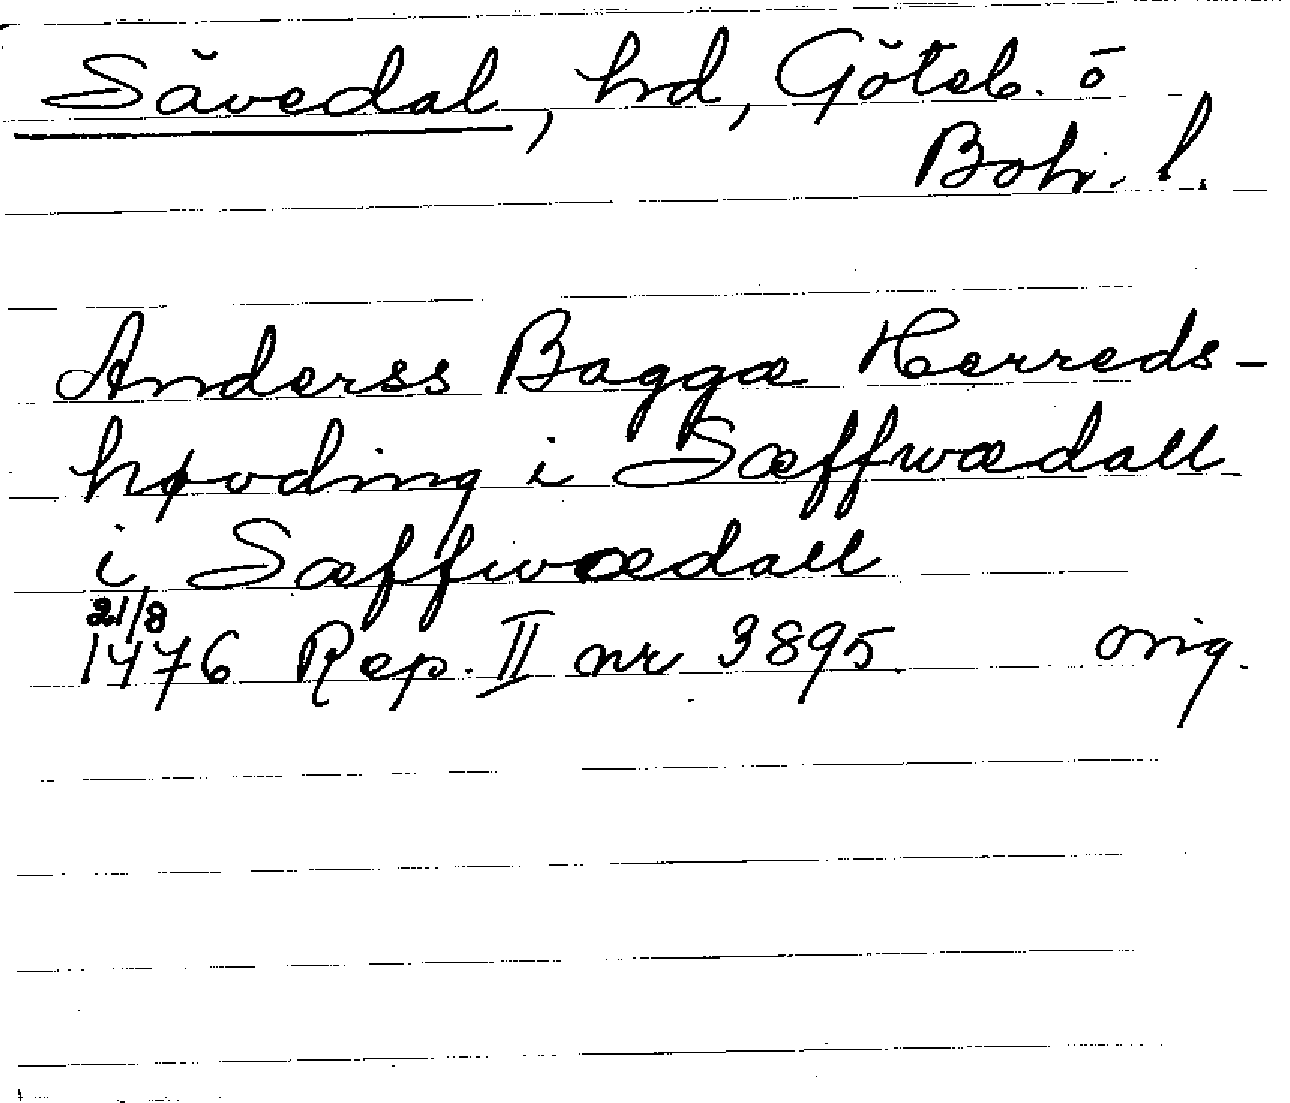 Sävedal, hd, Göteb. o
Boh. l.
Anderss Baggæ Herreds-
høvding i Sæffwædall
i Sæffwædall
21/8
1476 Rep. II nr 3895 orig.